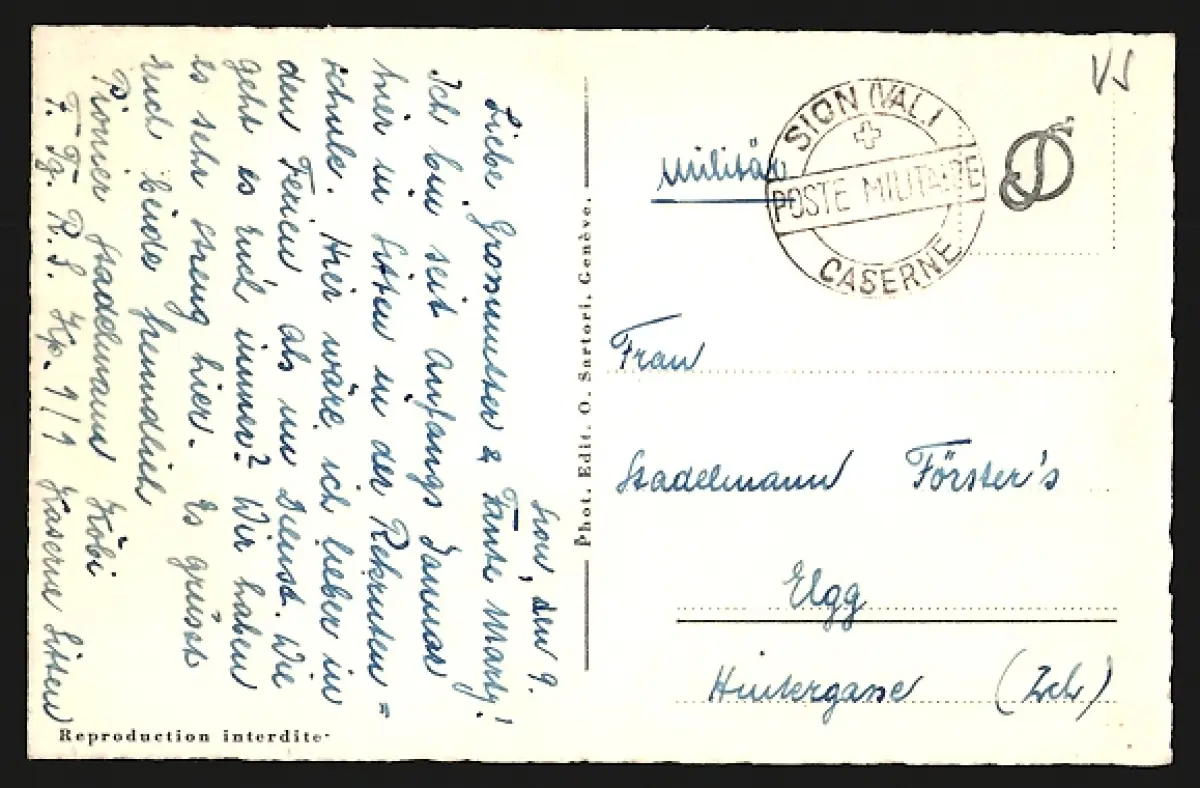 Sion, den 9.
Liebe Grossmutter & Tante Marty!
Ich bin seit anfangs Januar
hier in Sitten in der Rekruten =
schule. Hier wäre ich lieber in
den Ferien als im Dienst. Wie
geht es Euch immer? Wir haben
es sehr streng hier. Es grüsst
Euch beide freundlich
Köbi
Pionier Stadelmann
F. Tg. R.S. Kp. 1/1 Kaserne Sitten
Reproduction interdite
Phot. Edit. O. Sartori, Genève.
Militär
SION (VAL)
POSTE MILITAIRE
CASERNE
VS
Frau
Stadelmann Förster's
Elgg
Hintergasse (Zch)